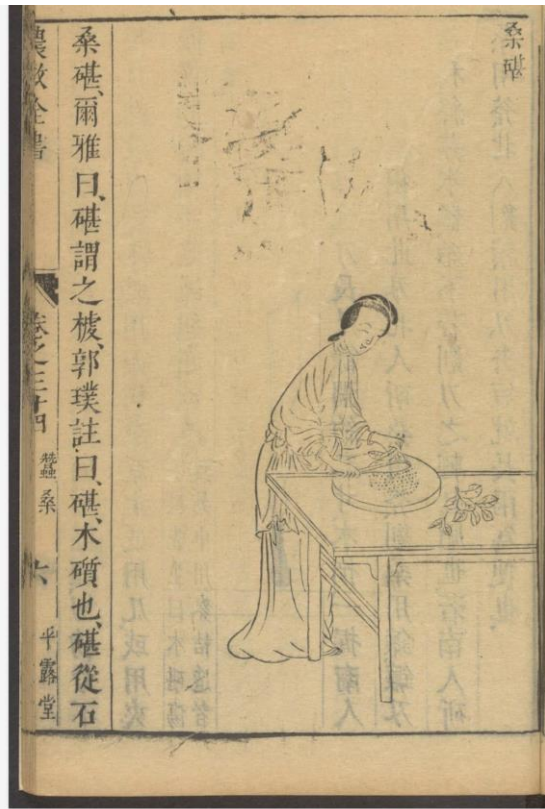 桑碪
桑碪、爾雅曰、碪謂之榩、郭璞註曰、碪、木礩也、碪從石
農政全書 卷之三十四 蠶桑 六 平露堂